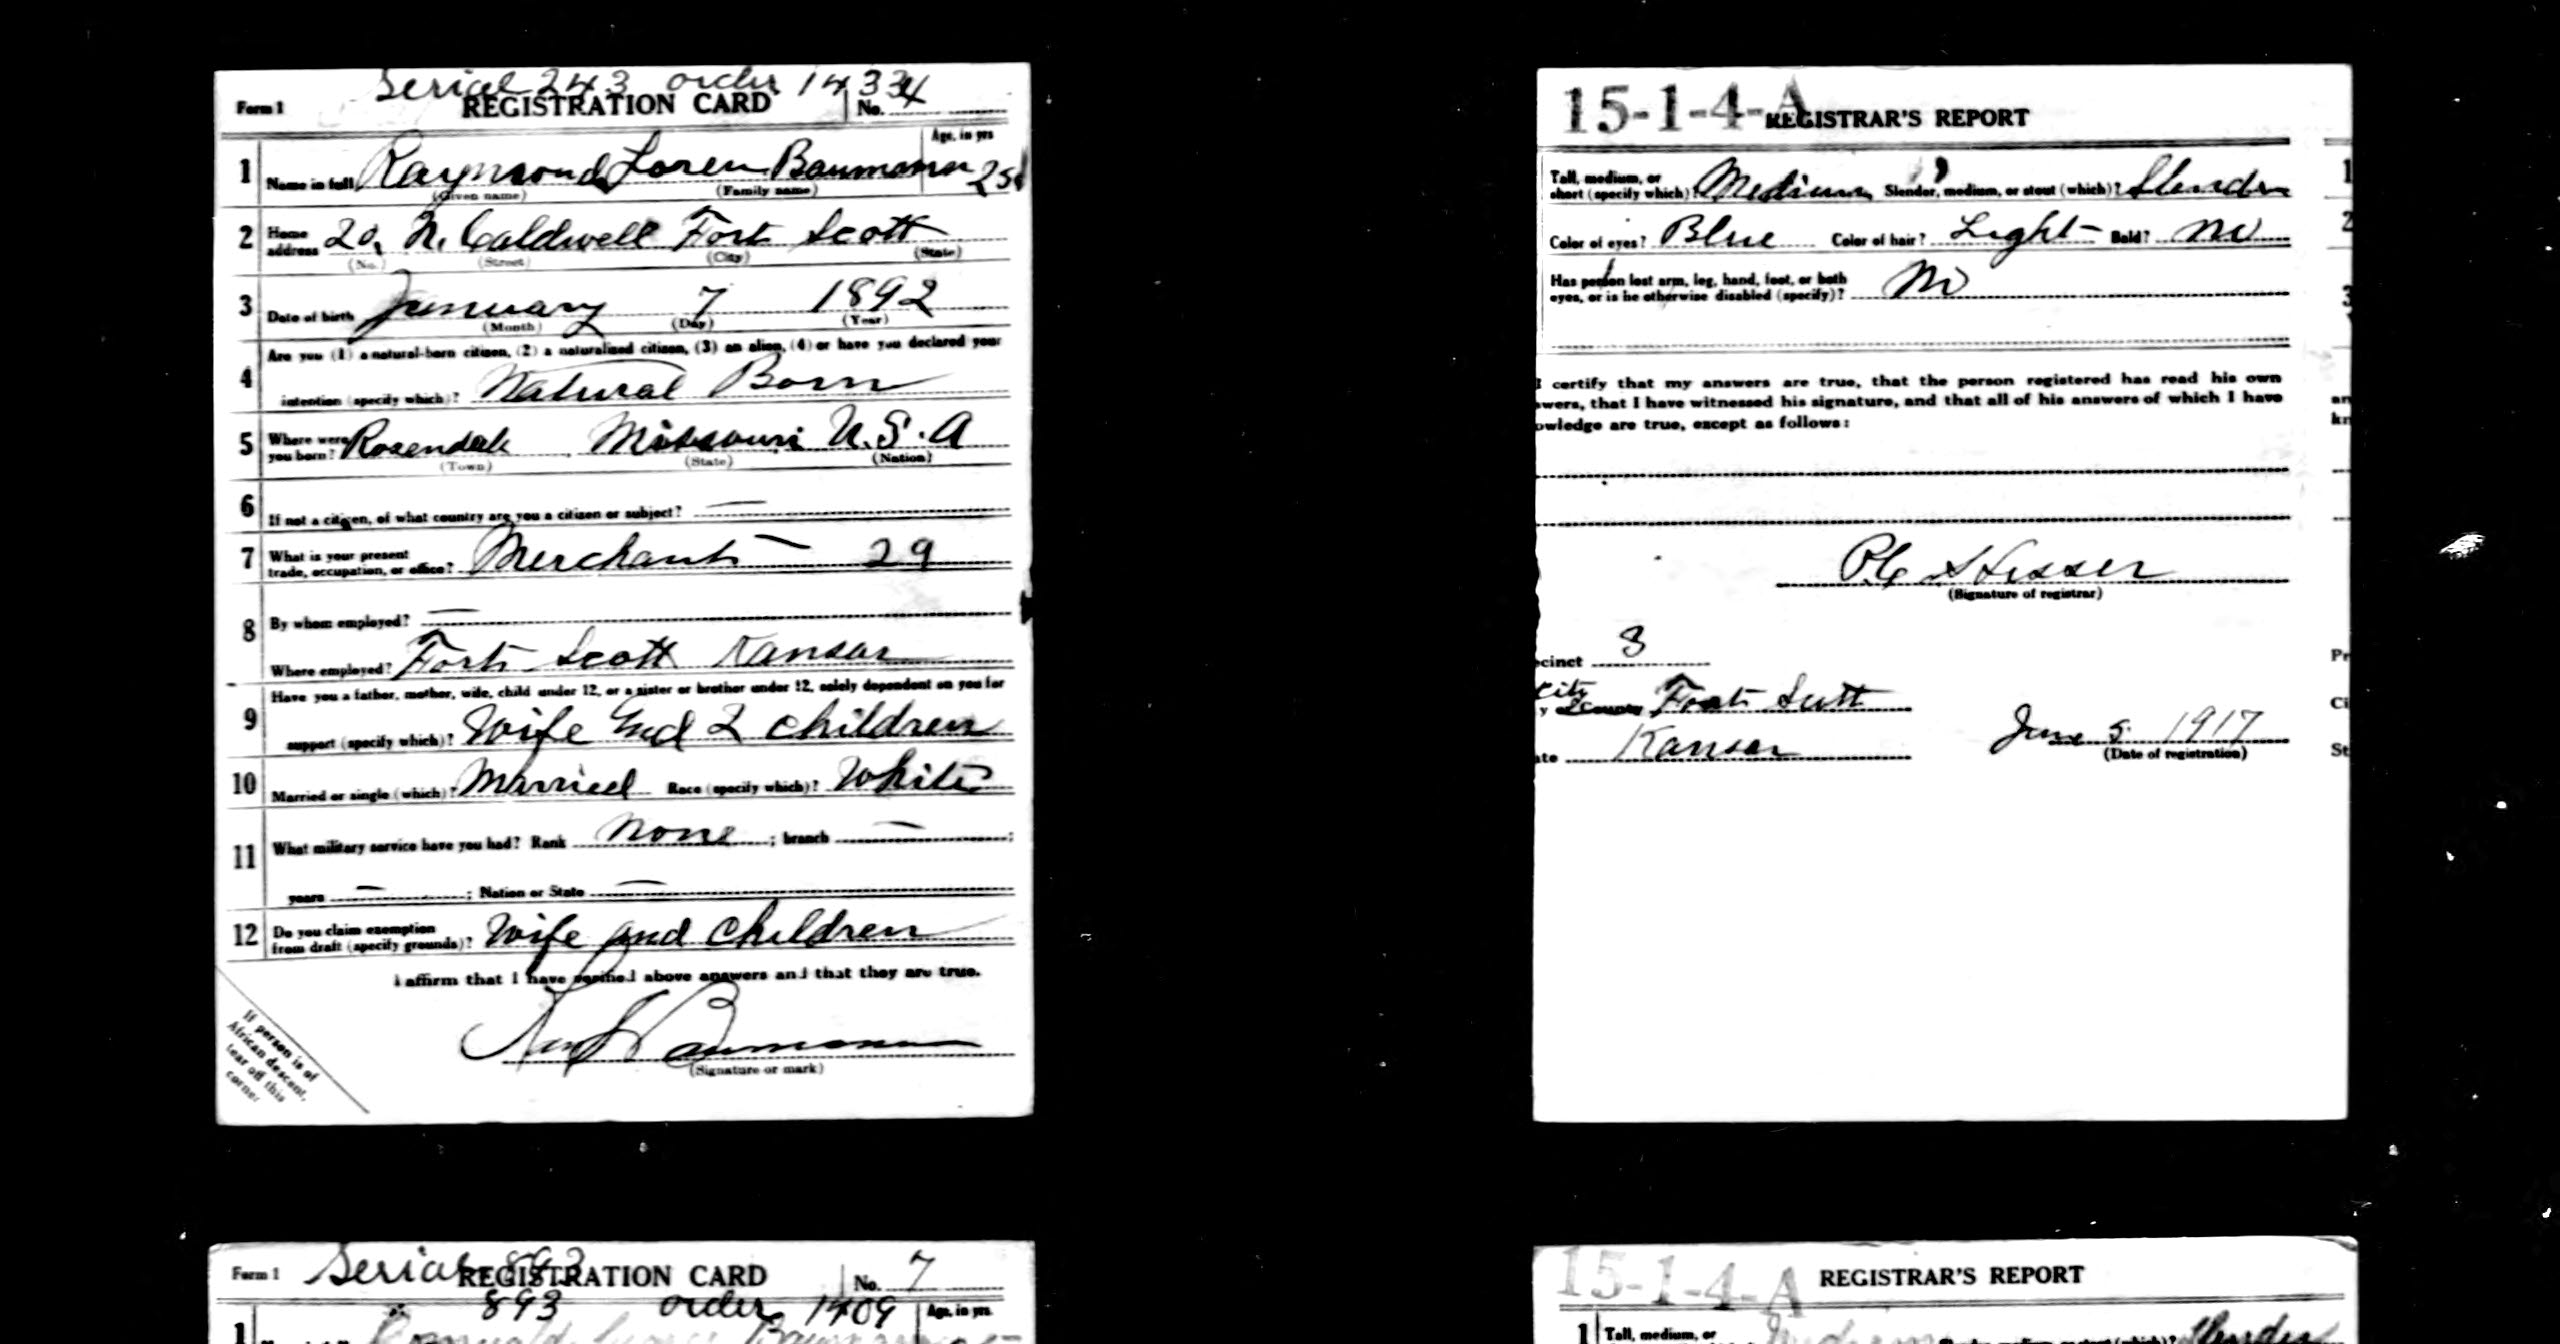 Serial 243 order 1433
Form 1 REGISTRATION CARD No. 4
Age, in yrs
1 Name in full Raymond Loren Baumann 25
(Given name) (Family name)
2 Home address 20, N. Caldwell Fort Scott
(No.) (Street) (City) (State)
3 Date of birth January 7 1892
(Month) (Day) (Year)
Are you (1) a natural-born citizen, (2) a naturalized citizen, (3) an alien, (4) or have you declared your
4 intention (specify which)? Natural Born
5 Where were you born? Rosendale Missouri U.S.A
(Town) (State) (Nation)
6 If not a citizen, of what country are you a citizen or subject? —
7 What is your present trade, occupation, or office? Merchant — 29
8 By whom employed? —
Where employed? Fort Scott Kansas
Have you a father, mother, wife, child under 12, or a sister or brother under 12, solely dependent on you for
9 support (specify which)? Wife and 2 children
10 Married or single (which)? Married Race (specify which)? White
11 What military service have you had? Rank None ; branch — ;
years — ; Nation or State —
12 Do you claim exemption from draft (specify grounds)? Wife and Children
I affirm that I have verified above answers and that they are true.
Baumann
(Signature or mark)
If person is of
African descent,
tear off this
corner
15-1-4-A REGISTRAR'S REPORT
1
Tall, medium, or short (specify which)? Medium Slender, medium, or stout (which)? Slender
2
Color of eyes? Blue Color of hair? Light Bald? No
Has person lost arm, leg, hand, foot, or both
eyes, or is he otherwise disabled (specify)? No
3
I certify that my answers are true, that the person registered has read his own
wers, that I have witnessed his signature, and that all of his answers of which I have
owledge are true, except as follows:
an
kn
(Signature of registrar)
cinct 3
Pr
City
y or County Fort Scott
Ci
ate Kansas June 5 1917
(Date of registration)
St
Form 1 Serial 893 REGISTRATION CARD No. 7
893 order 1409 Age, in yrs
1
15-1-4-A REGISTRAR'S REPORT
1 Tall, medium, or Slender